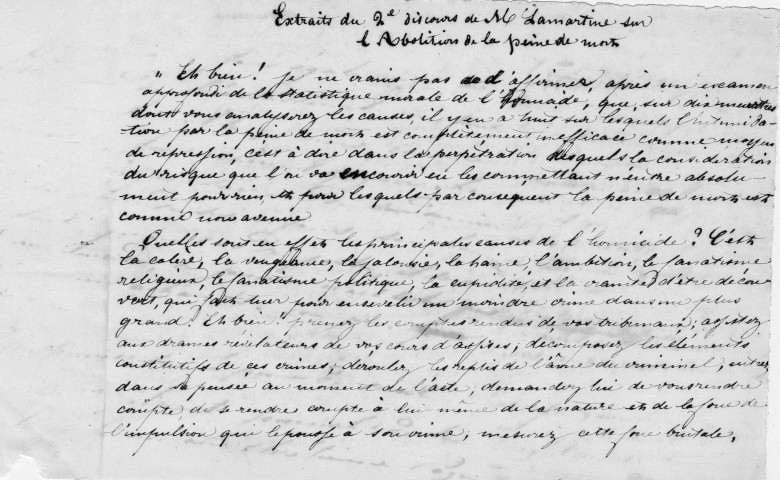 Extraits du 2e discours de Mr Lamartine sur
l'Abolition de la peine de mort
" Eh bien! je ne crains pas d'affirmer, après un examen
approfondi de la statistique morale de l'homicide, que, sur dix meurtres
dont vous analyserez les causes, il y en a huit sur lesquels l'intimida-
-tion par la peine de mort est complètement inefficace comme moyen
de répression, c'est à dire dans la perpétration desquels la considération
du risque que l'on va encourir en les commettant n'entre absolu-
ment pour rien, et pour lesquels par conséquent la peine de mort est
comme non avenue
Quelles sont en effet les principales causes de l'homicide? C'est
la colère, la vengeance, la jalousie, la haine, l'ambition, le fanatisme
religieux, le fanatisme politique, la cupidité, et la crainte d'être décou-
vert, qui fait tuer pour ensevelir un moindre crime dans un plus
grand! Eh bien! prenez les comptes rendus de vos tribunaux; assistez
aux drames révélateurs de vos cours d'assises; décomposez les éléments
constitutifs de ces crimes; déroulez les replis de l'âme du criminel, entrez
dans sa pensée au moment de l'acte; demandez lui de vous rendre
compte, de se rendre compte à lui même de la nature et de la force de
l'impulsion qui le pousse à son crime; mesurez cette force brutale,